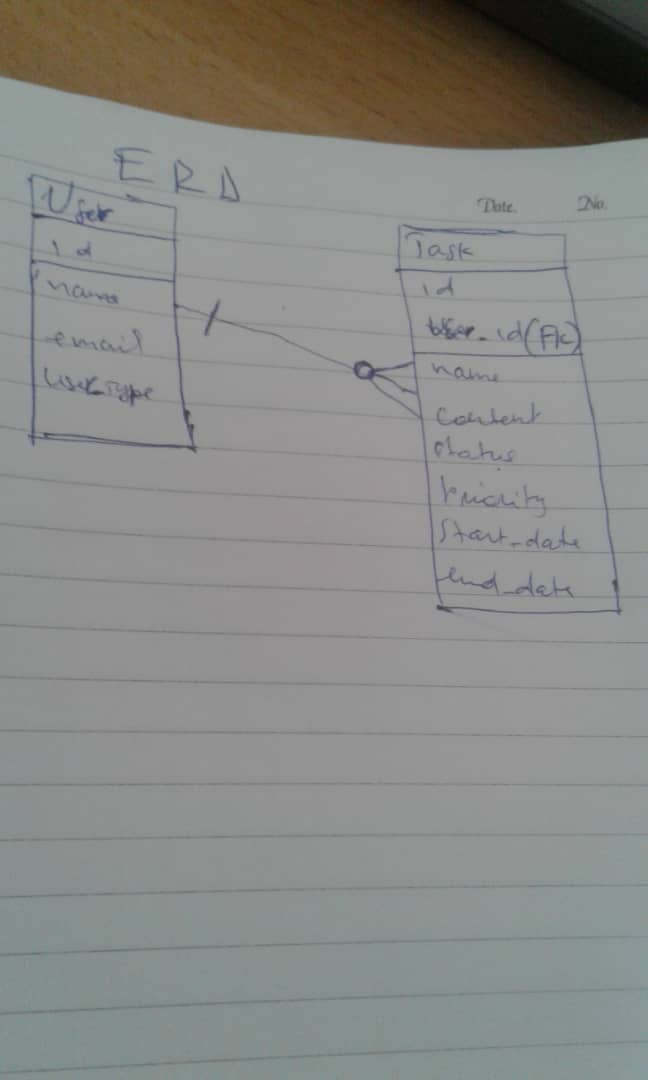 ERD
Date.
No.
User
id
name
email
usertype
Task
id
user_id(FK)
name
content
status
Priority
Start_date
end_date